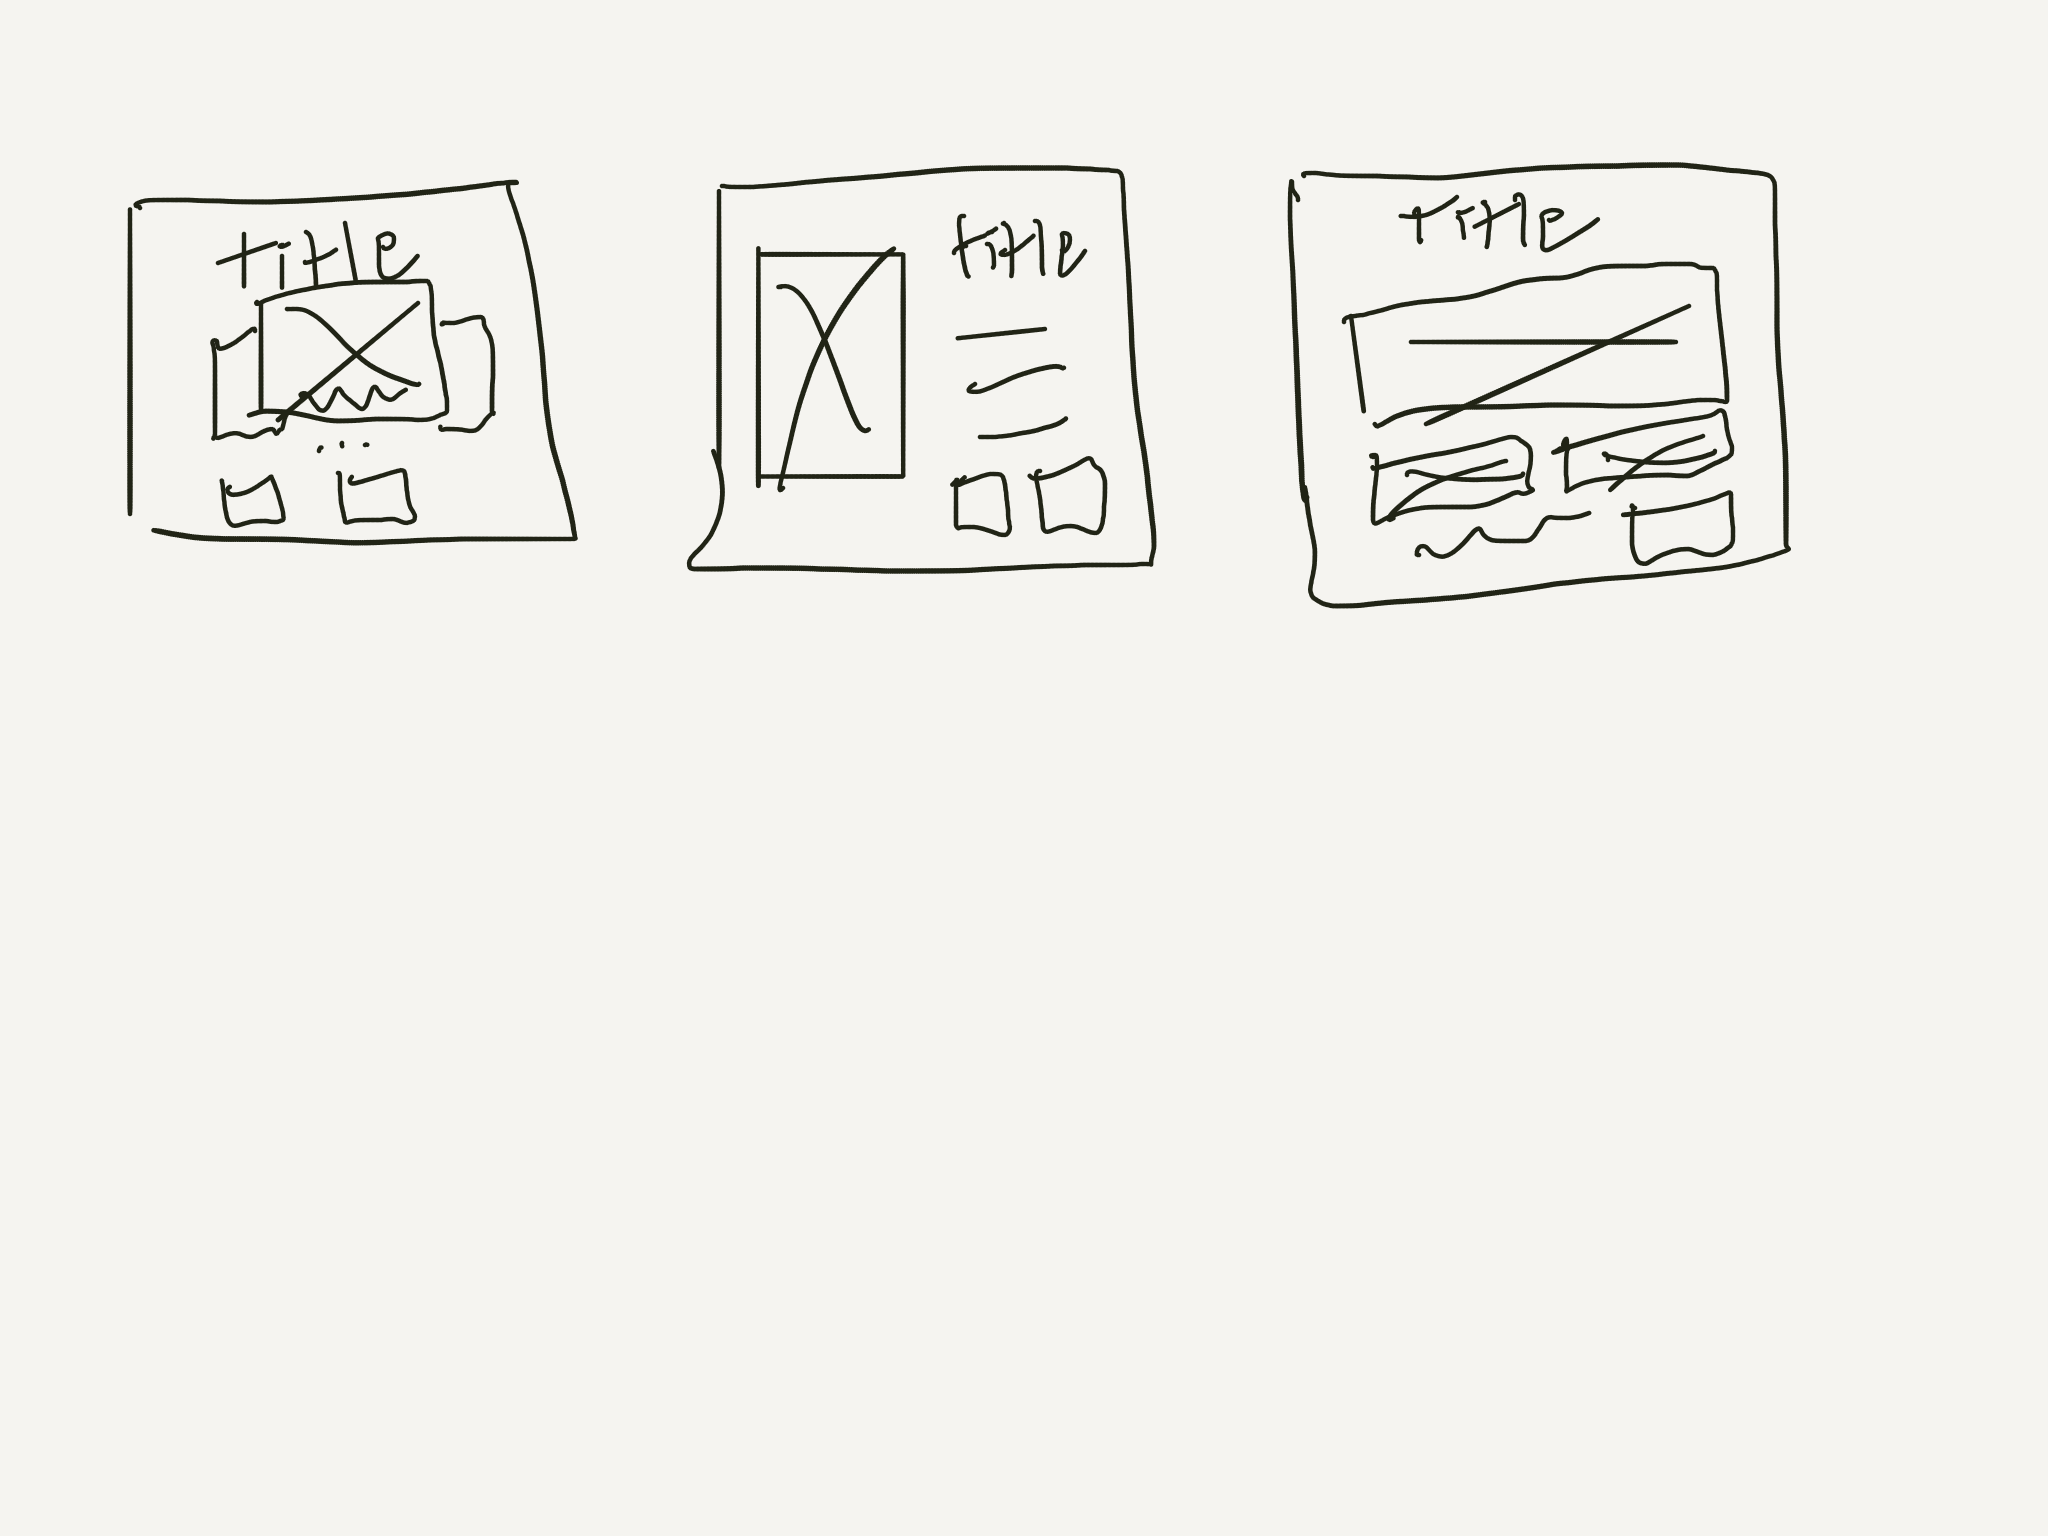 title
title
title